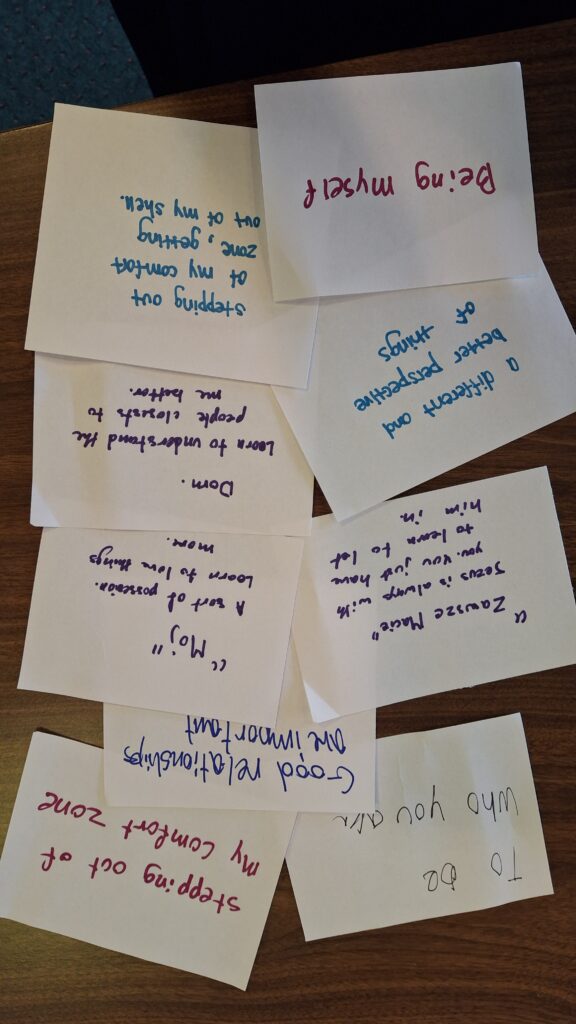 To Be
Who you are
Stepping out of
my comfort zone
Good relationships
are important
"Zawsze Macie"
Jezus is always with
you. You just have
to learn to let
him in.
"Moj"
A sort of possesion.
Learn to love things
more.
Dom.
Learn to understand the
people closests to
me better.
a different and
better perspective
of things
stepping out
of my comfort
zone, getting
out of my shell.
Being myself